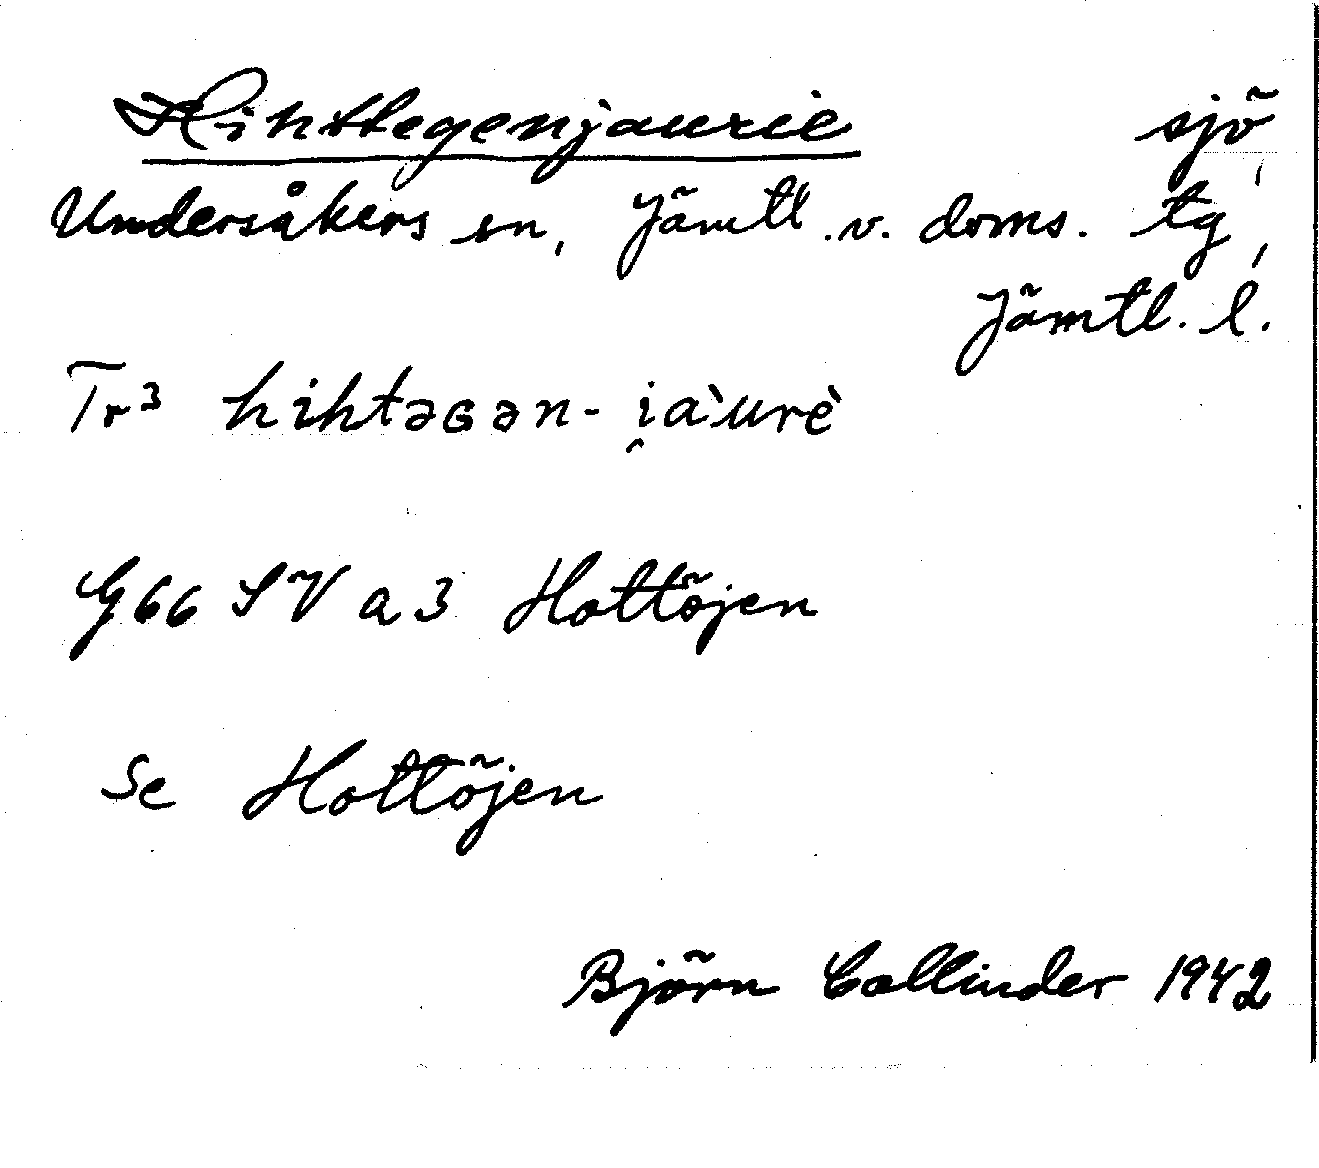 Hihttegenjaurie sjö,
Undersåkers sn, Jämtl. v. doms. tg,
Jämtl. l.
Tr³ hihtəɢən-i̯a`urè
G66 SV a 3 Hottöjen
Se Hottöjen
Björn Collinder 1942